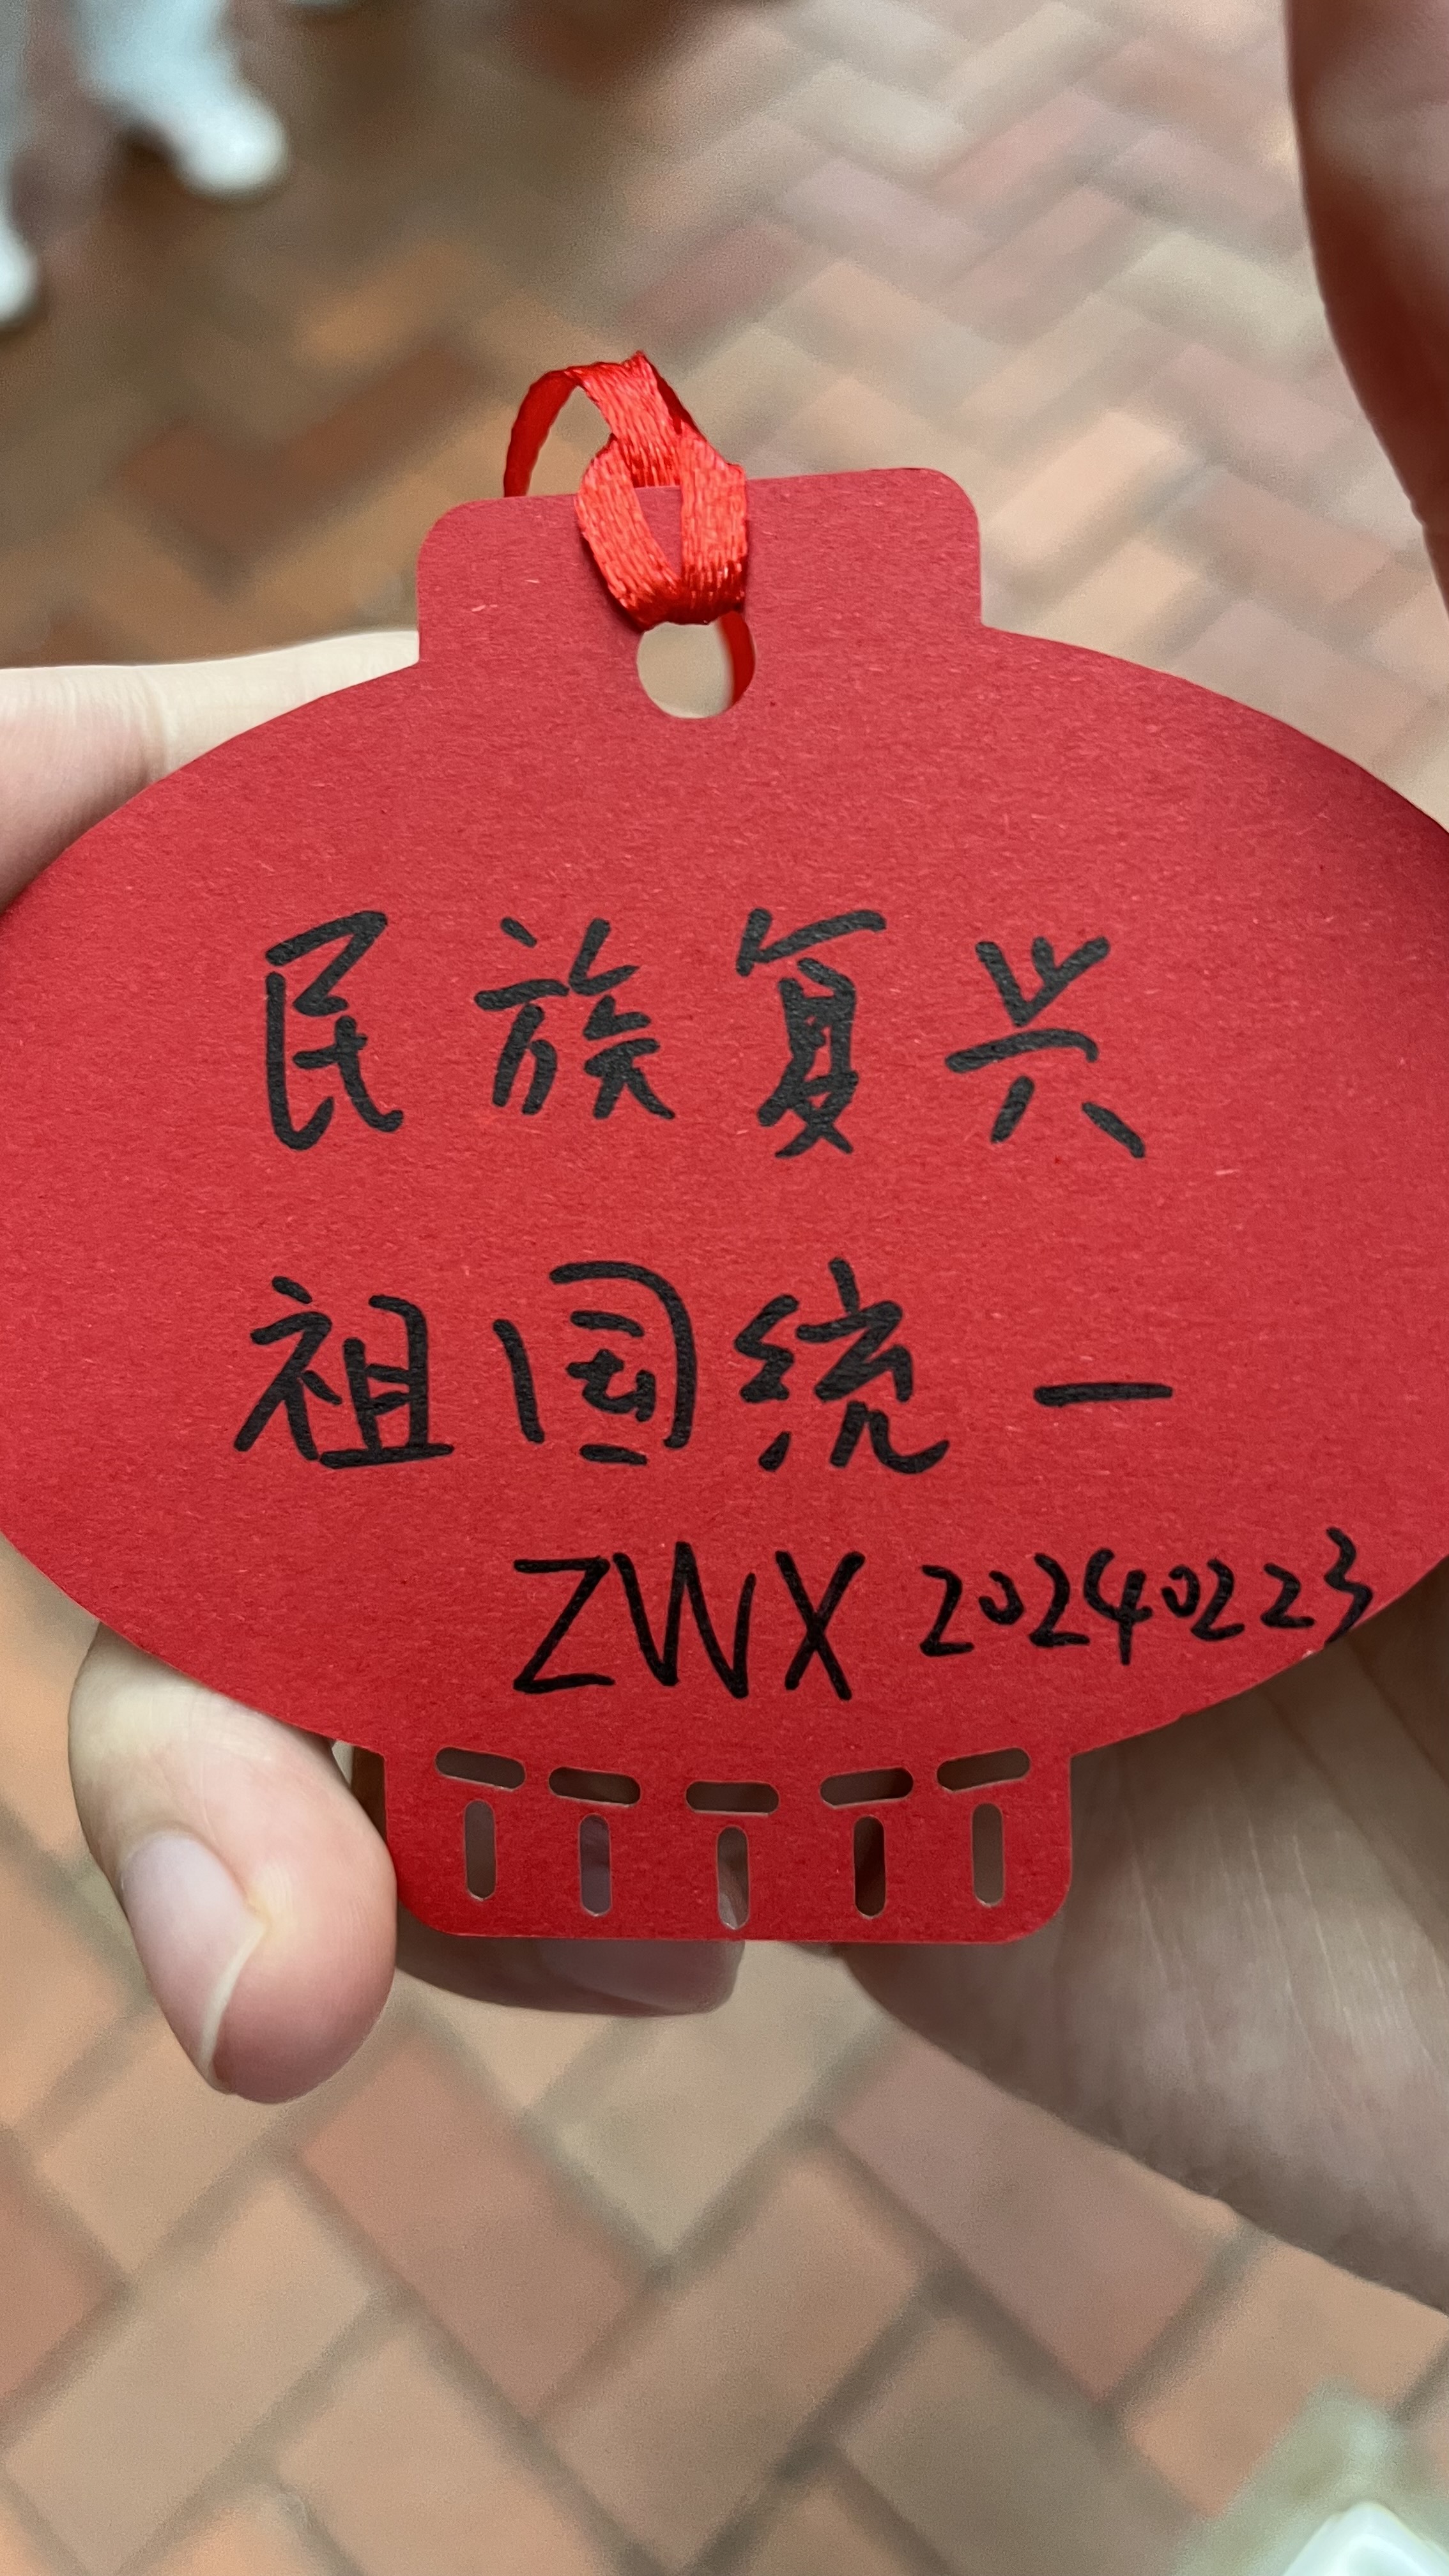 民族复兴
祖国统一
ZWX 20240223